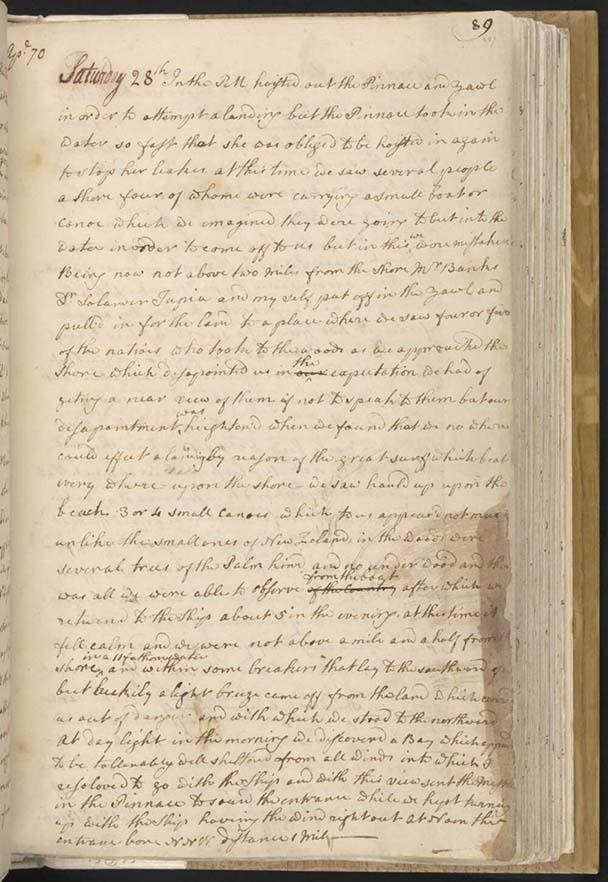 89
Apl. 70
Saturday 28th In the PM hoisted out the Pinnace and Yawl
in order to attempt a landing but the Pinnace took in the
water so fast that she was obliged to be hoisted in again
to stop her leakes at this time we saw several people
a shore four of whome were carrying a small boat or
Canoe which we imagined they were going to but into the
water in order to come off to us but in this we were mistaken
Being now not above two Miles from the shore Mr. Banks
Dr. Solander Tupia and my self put off in the yawl and
pull'd in for the land to a place where we saw four or five
of the natives who took to the woods as we approached the
Shore which disapointed us in the our expectation we had of
geting a near view of them if not to speak to them but our
disapointment was heighten'd when we found that we no where
could effect a landing by reason of the great surf which beat
every where upon the shore - we saw hauld up upon the
beach 3 or 4 small Canoes which to us appear'd not much
unlike the small ones of New Zeland, in the woods were
several trees of the Palm kind and no under wood and this
was all we were able to observe from the boat of the Country after which we
returned to the Ship about 5 in the evening. at this time it
fell calm and we were not above a mile and a half from the
shore in a 11 fathom water and within some breakers that lay to the southward of
but luckily a light breeze came off from the land which carrd
us out of danger and with which we stood to the northward
at day light in the morning we discovered a Bay which appear'd
to be tollerably well shelterd from all winds into which I
resoloved to go with the Ship and with this view sent the Master
in the Pinnace to sound the entrance while we kept turning
up with the Ship having the wind right out at Noon the
entrance bore NNW distance 1 Mile